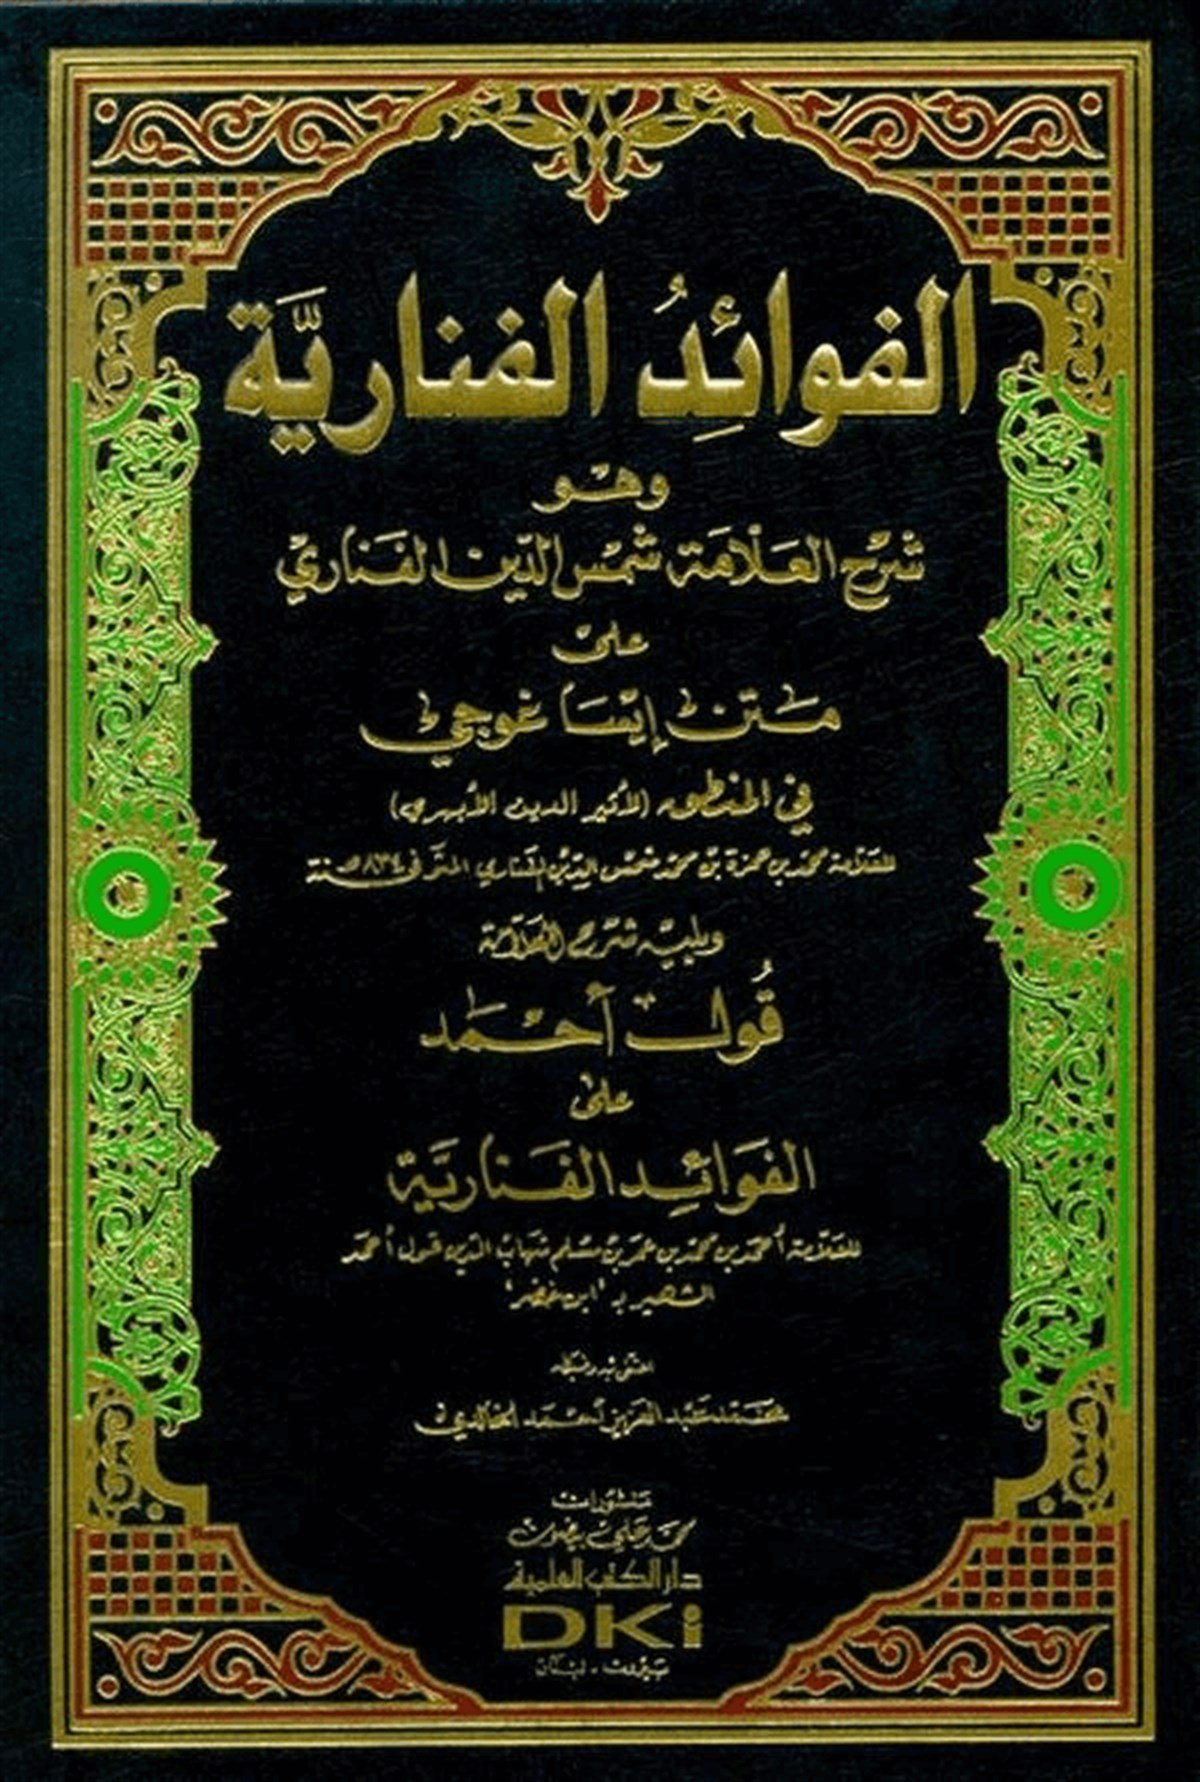 الفوائدُ الفناريَّة
وهو
شرح العلامة شمس الدين الفناري
على
متن إيساغوجي
في المنطق (لأثير الدين الأبهري)
للعلامة محمد بن حمزة بن محمد شمس الدين الفناري المتوفى سنة ٨٣٤هـ
ويليه شرح العلامة
قُول أحمد
على
الفوائد الفنارية
للعلامة أحمد بن محمد بن عمر بن مسلم شهاب الدين قول أحمد
الشهير بـ "ابن خضر"
اعتنى به وضبطه
محمد عبد العزيز أحمد الخالدي
منشورات
محمد علي بيضون
دار الكتب العلمية
DKi
بيروت - لبنان